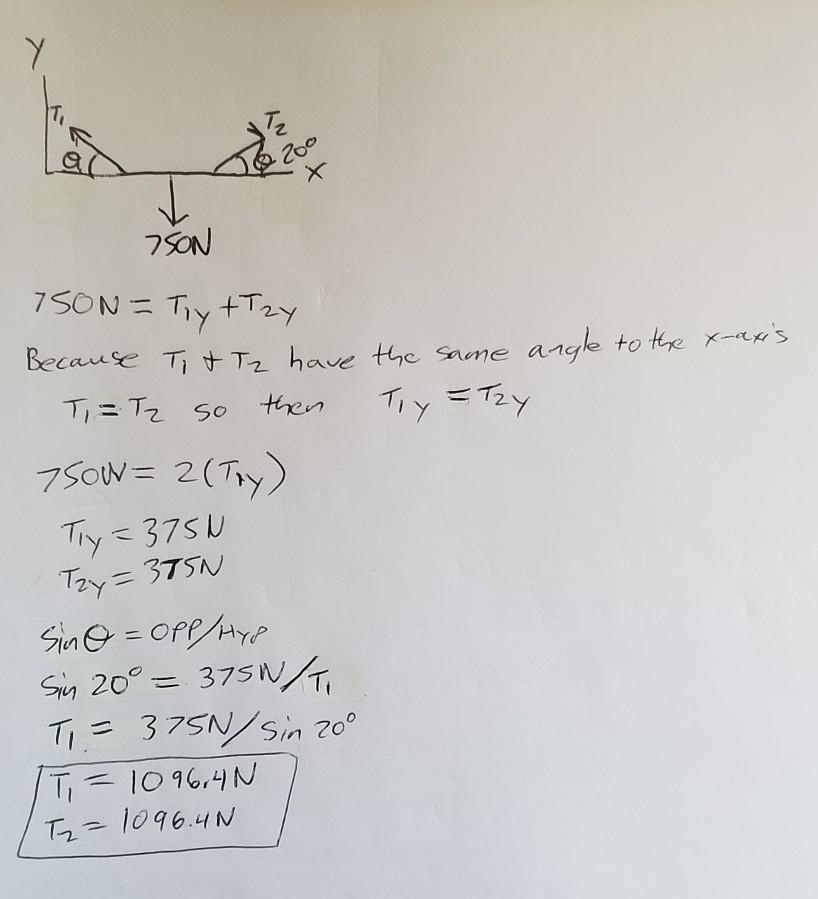 Y
T₁
T₂
θ
θ 20°
X
750N
750N = T₁y + T₂y
Because T₁ + T₂ have the same angle to the x-axis
T₁ = T₂ so then T₁y = T₂y
750N = 2(T₁y)
T₁y = 375N
T₂y = 375N
Sin θ = OPP/HYP
Sin 20° = 375N/T₁
T₁ = 375N/Sin 20°
T₁ = 1096.4N
T₂ = 1096.4N